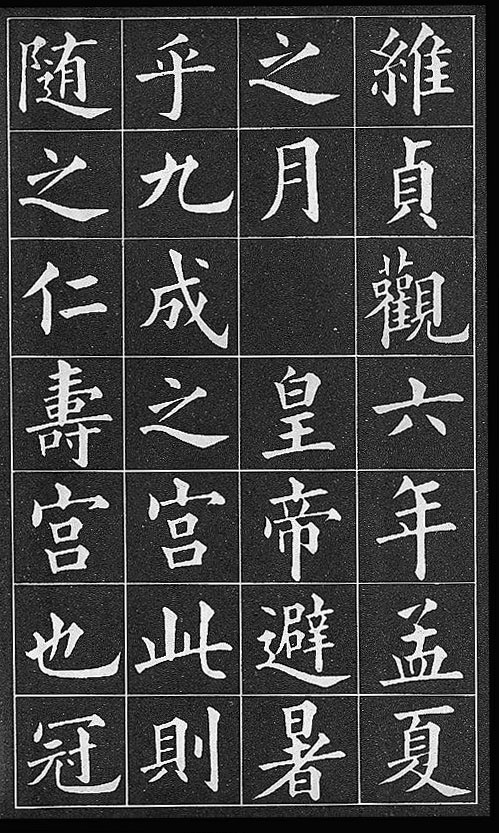 維貞觀六年孟夏
之月 皇帝避暑
乎九成之宫此則
随之仁壽宫也冠